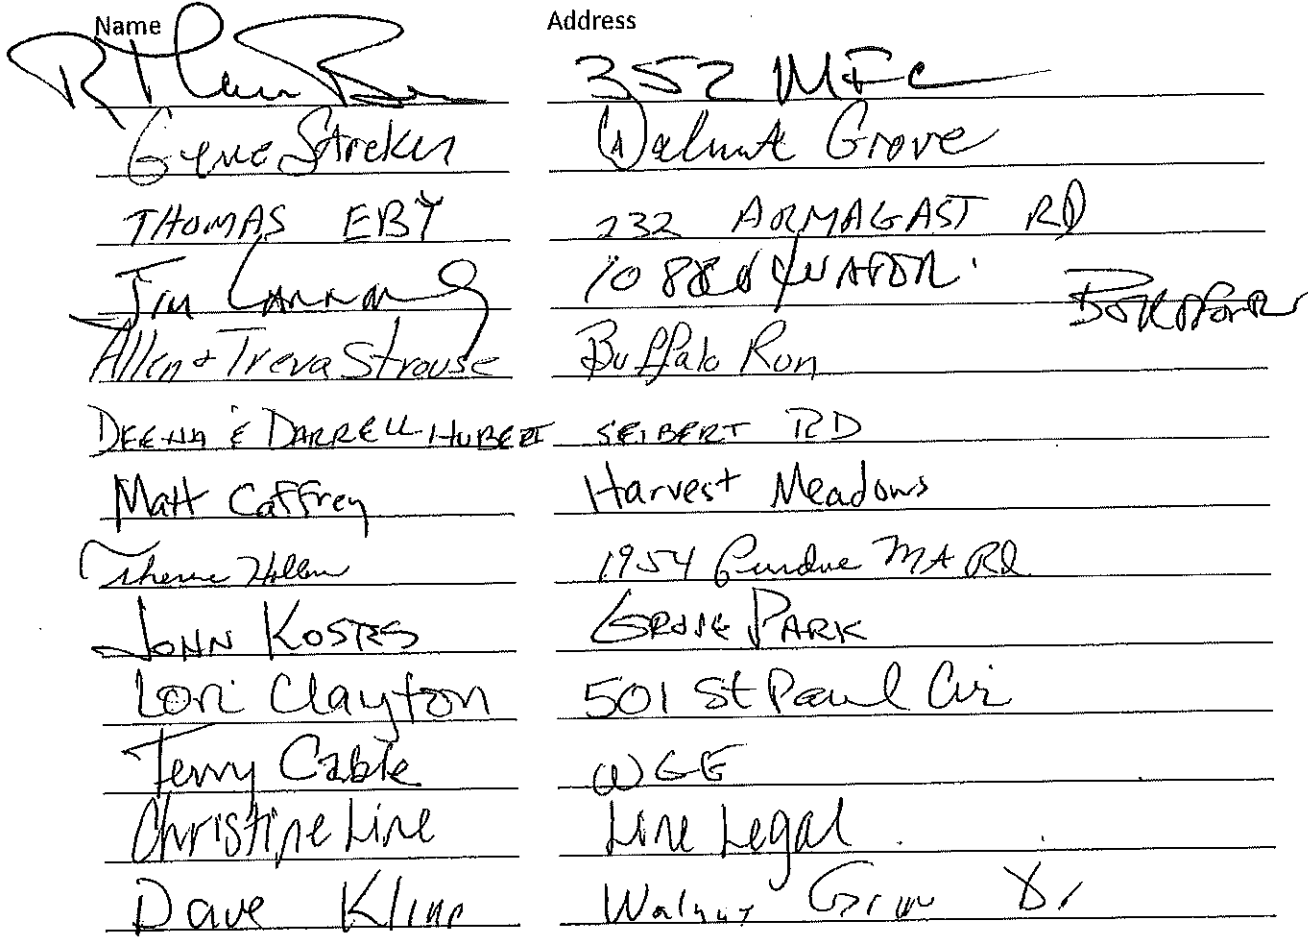 Name Address
352 MFC
Gene Streker Walnut Grove
THOMAS EBY 232 ARMAGAST RD
Jim
Allen & Treva Strouse Buffalo Run
DEENA & DARRELL HUBERT SEIBERT RD
Matt Caffrey Harvest Meadows
1954 Purdue MT RD
JOHN KOSTES GROVE PARK
Lori Clayton 501 St Paul Cir
Terry Cable WGE
Christine Line Line Legal
Dave Kline Walnut Grove Dr